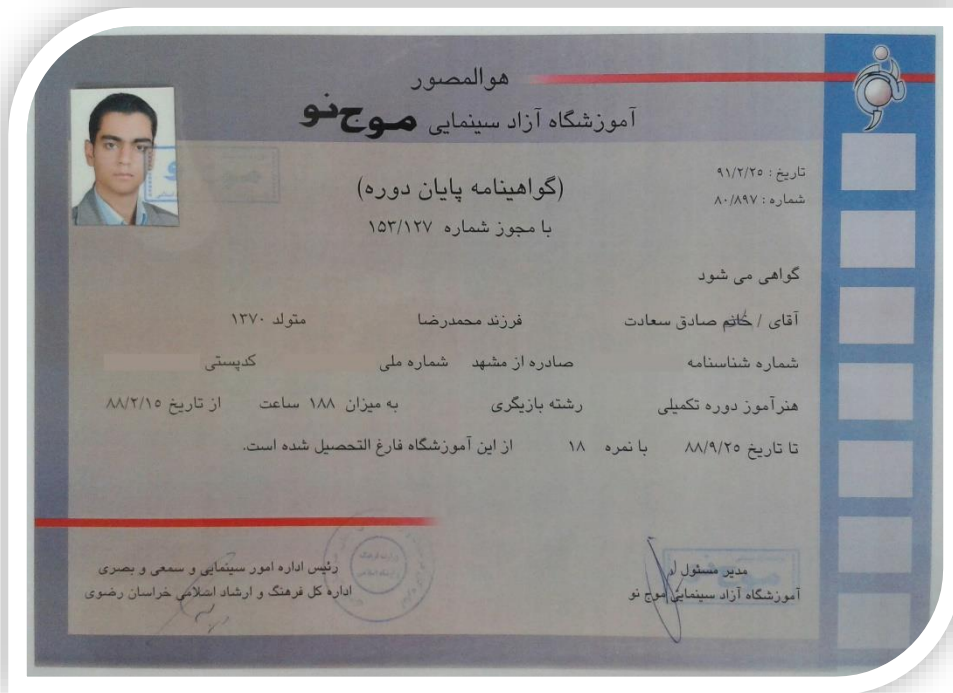 هوالمصور
آموزشگاه آزاد سینمایی موج نو
تاریخ : ۹۱/۲/۲۵
شماره : ۸۰/۸۹۷
(گواهینامه پایان دوره)
با مجوز شماره ۱۵۳/۱۲۷
گواهی می شود
آقای / خانم صادق سعادت فرزند محمدرضا متولد ۱۳۷۰
شماره شناسنامه صادره از مشهد شماره ملی کدپستی
هنرآموز دوره تکمیلی رشته بازیگری به میزان ۱۸۸ ساعت از تاریخ ۸۸/۲/۱۵
تا تاریخ ۸۸/۹/۲۵ با نمره ۱۸ از این آموزشگاه فارغ التحصیل شده است.
مدیر مسئول
آموزشگاه آزاد سینمایی موج نو
رئیس اداره امور سینمایی و سمعی و بصری
اداره کل فرهنگ و ارشاد اسلامی خراسان رضوی